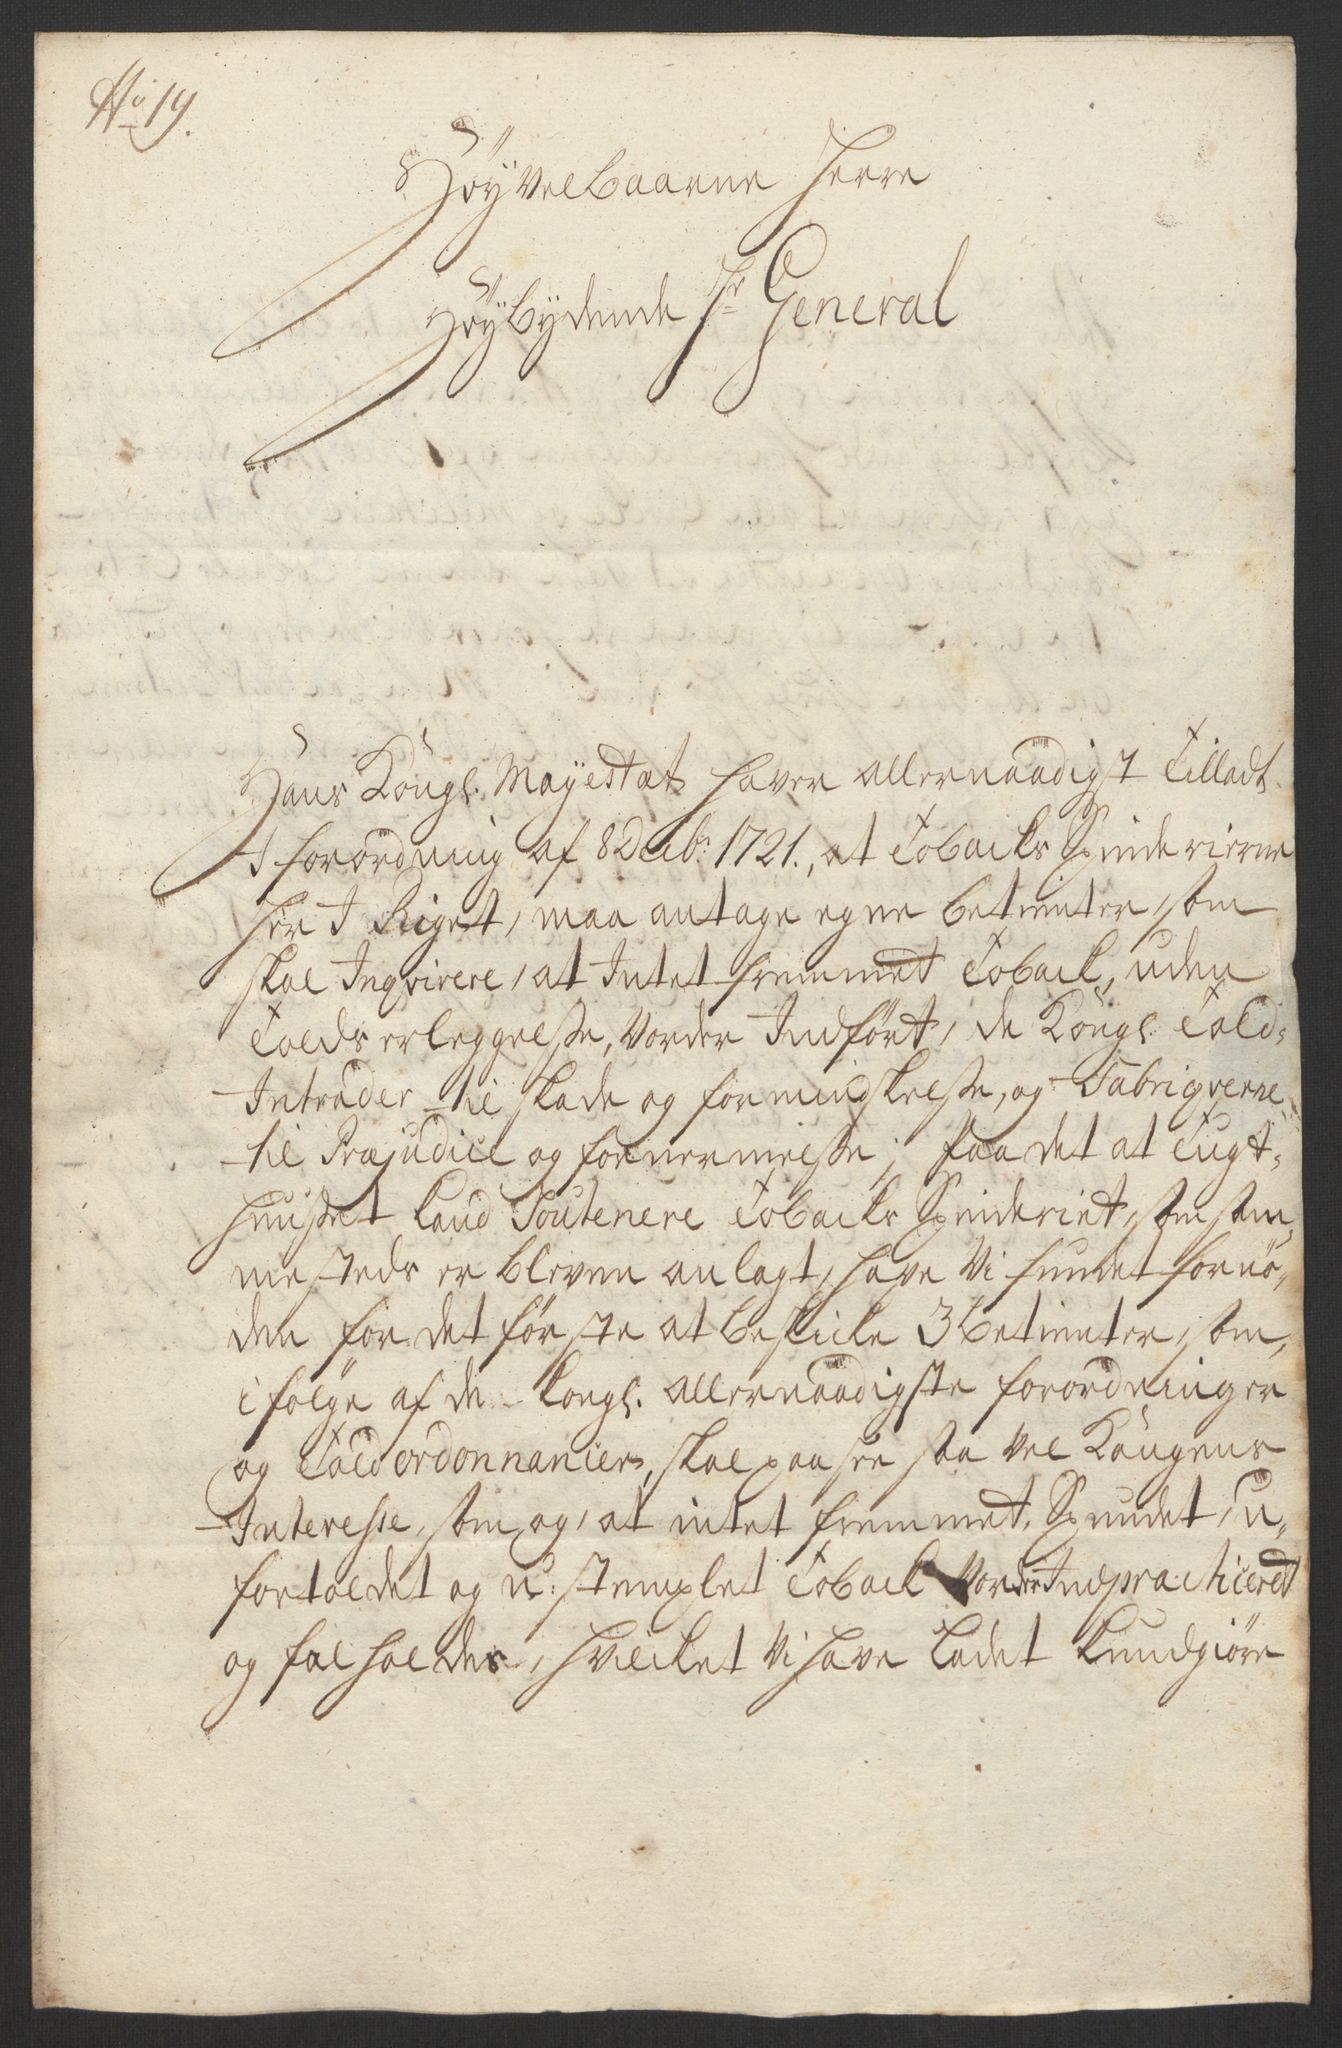 No 19.
Höyvelbaarne Herre
Höybydende Hr General
Hans Kongl. Mayestæt haver allernaadigst Tilladt
I forordning af 8 Decbr 1721., at Tobacks Spinderierne
her I Riget, maa antage egne betienter, som
skal Inqvirere, at Intet fremmet Toback, uden
Tolds erleggelsse, vorder Indført, de Kongl. Told-
Intrader til skade og formindskelsse, og Fabriqverne
til Præjudice og fornermelsse; Paa det at Tugt-
huusset kand Soutenere Tobacks Spinderiet, som sam-
mesteds er bleven anlagt, have Vi fundet fornö-
den for det förste at beskicke 3 betienter, som,
i folge af de Kongl. allernaadigste forordninger
og Told ordonnancier, skal paasee saa vel Kongens
Interesse, som og, at intet fremmet, Spundet, u-
fortoldet og u-stemplet Toback Vorder Indpracticeret
og falholdes, hvilcket Vi have Ladet kundgiöre